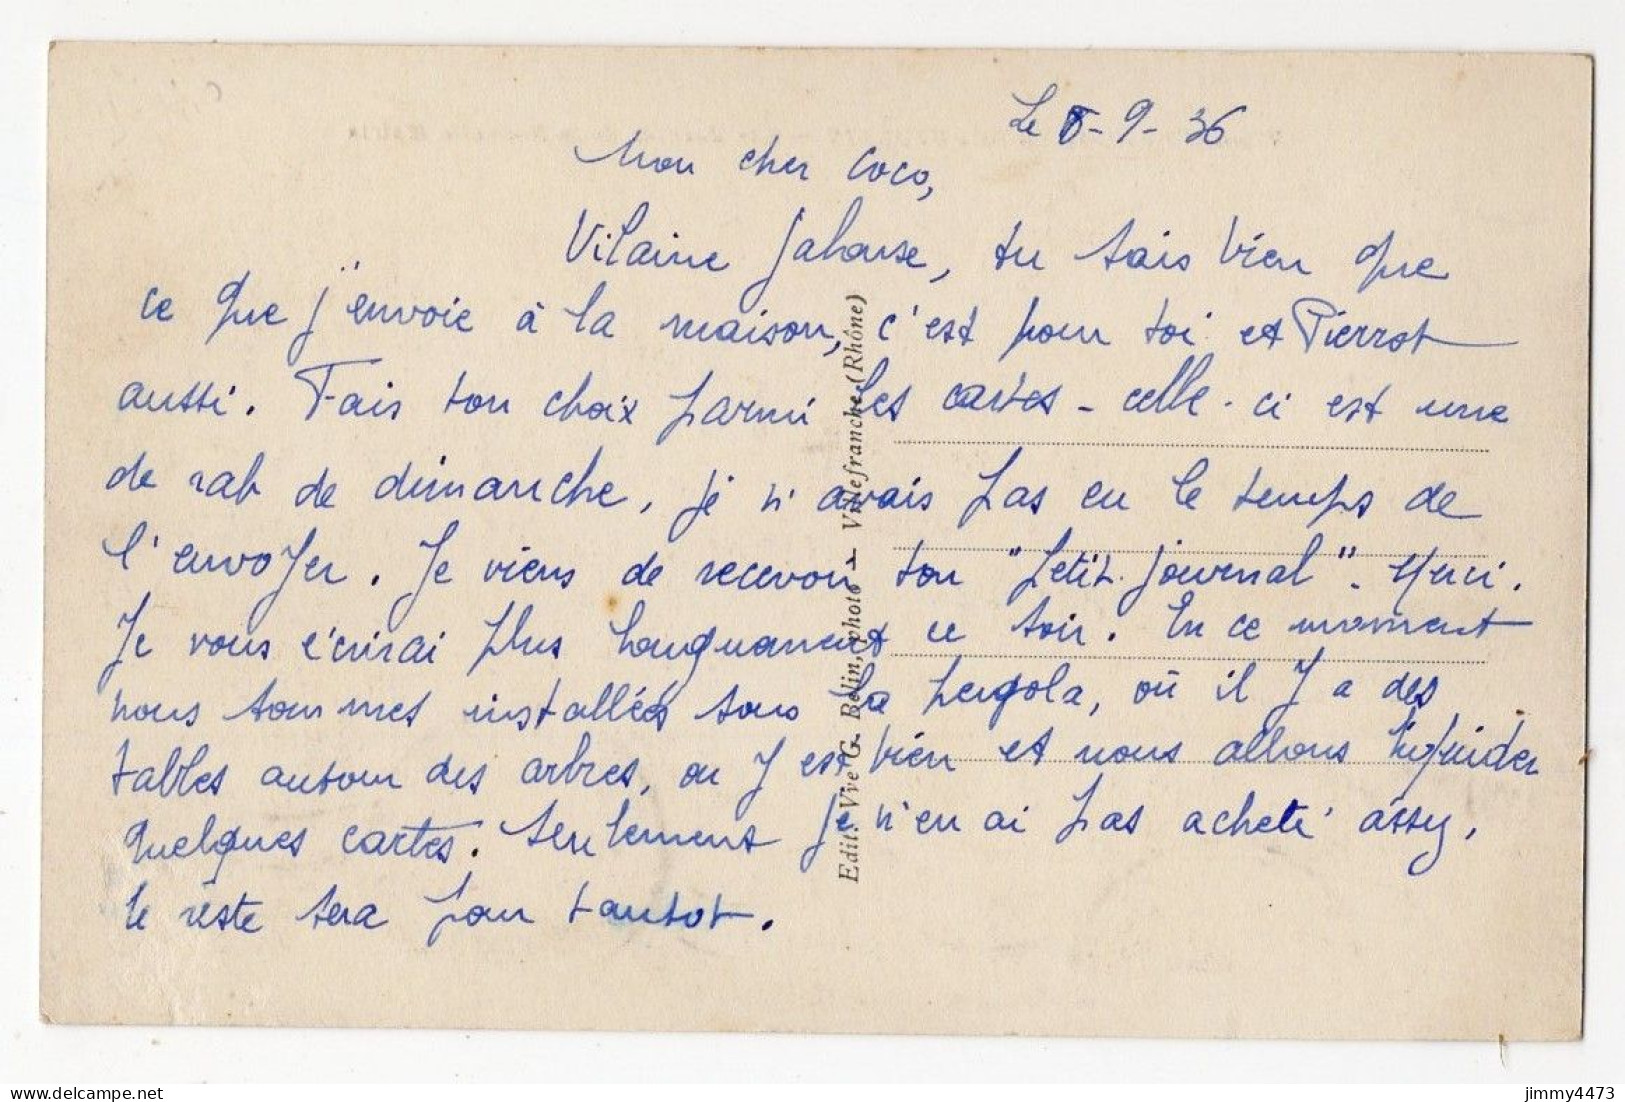 Le 8-9-36
Mon cher Coco,
Vilaine jalouse, tu sais bien que
ce que j'envoie à la maison, c'est pour toi et Pierrot
aussi. Fais ton choix parmi les cartes - celle-ci est une
de rab de dimanche, je n'avais pas eu le temps de
l'envoyer. Je viens de recevoir ton "Petit journal". Merci.
Je vous écrirai plus longuement ce soir. En ce moment
nous sommes installées sous la pergola, où il y a des
tables autour des arbres, on y est bien et nous allons liquider
quelques cartes. Seulement je n'en ai pas acheté assey,
le reste sera pour tantot.
Edit. Vve G. Belin, photo - Villefranche (Rhône)
jimmy4473
delcampe.net